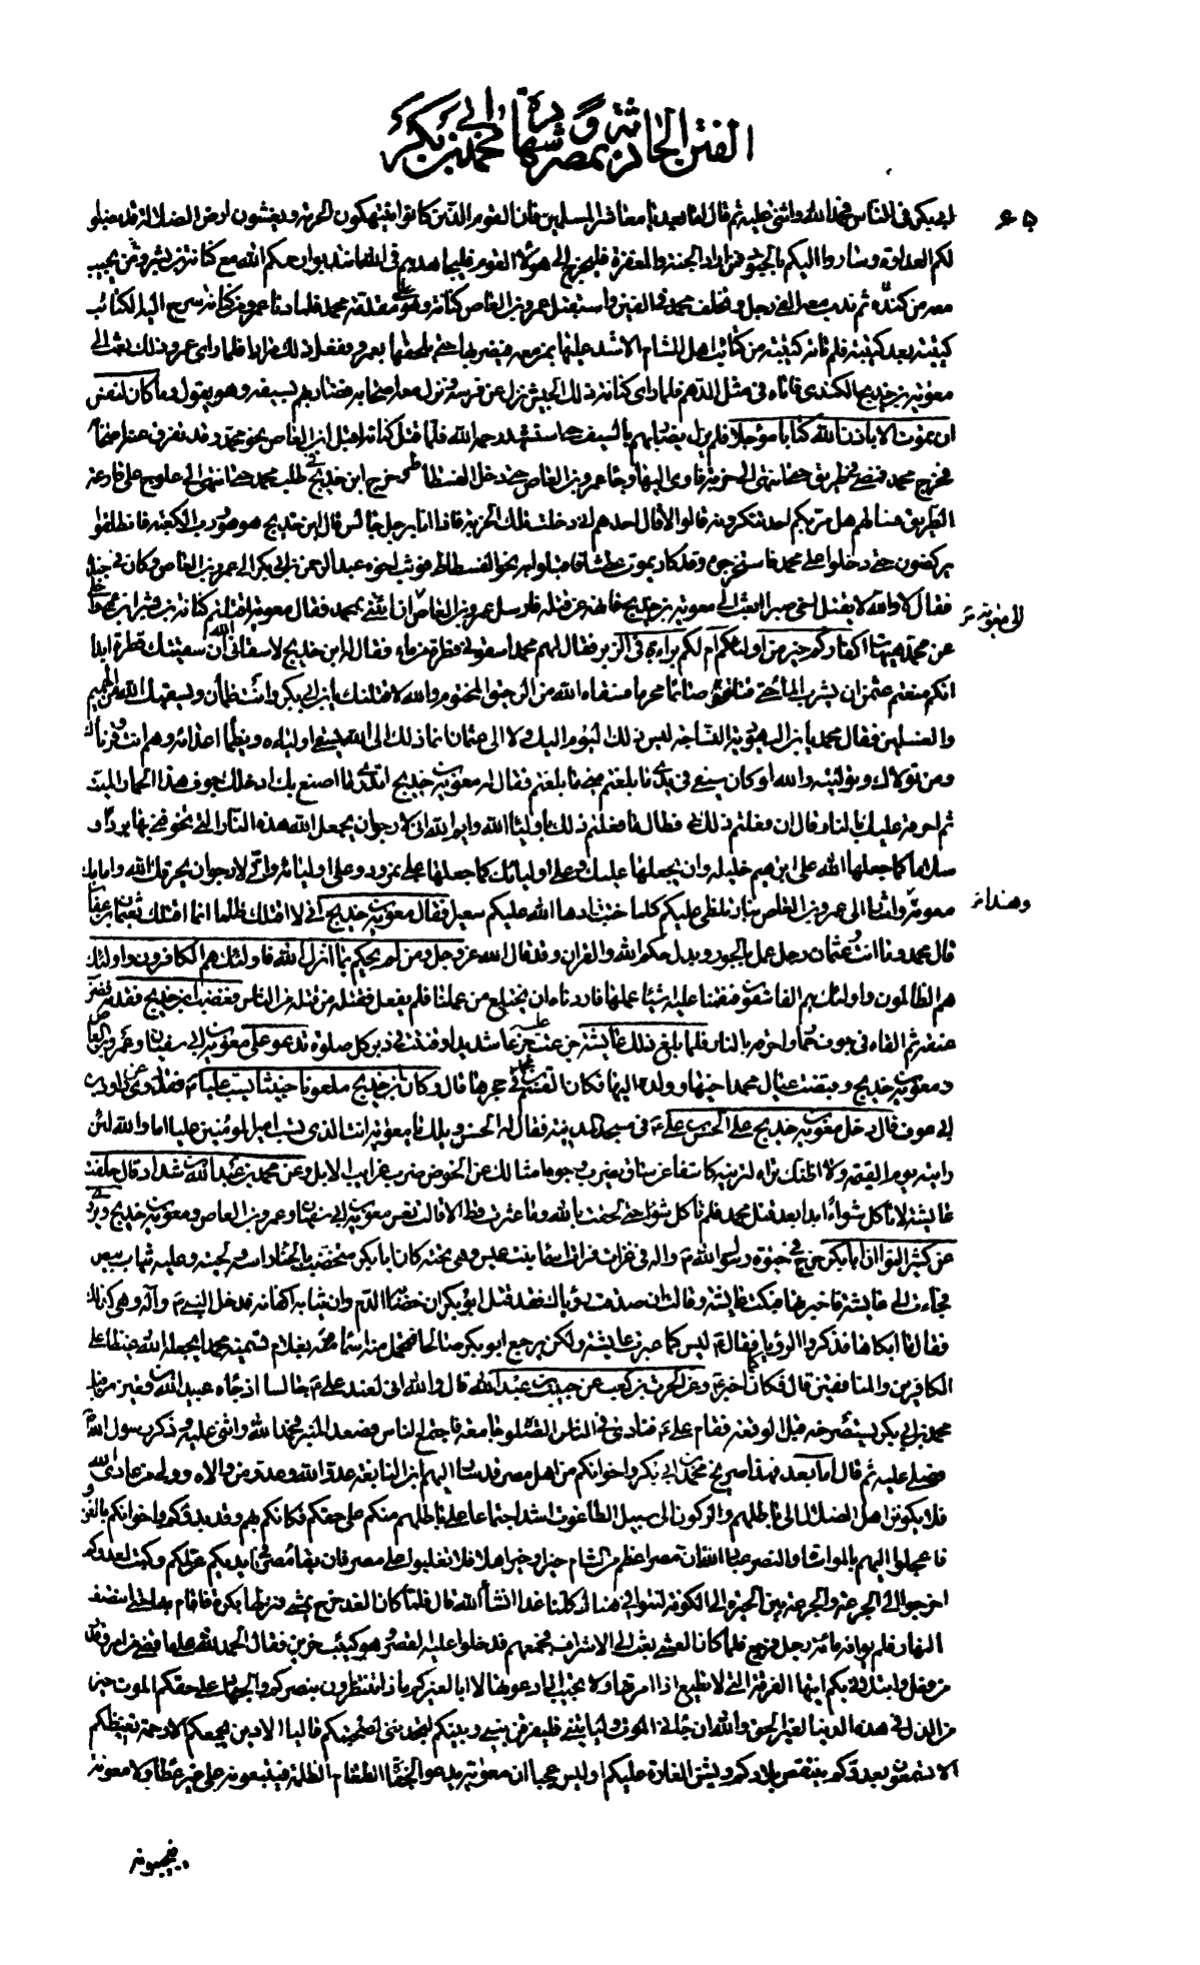 الفتن الحادثة بمصر و شهادة محمد بن ابي بكر
ابي بكر في الناس فحمد الله واثنى عليه ثم قال اما بعد يا معاشر المسلمين فان القوم الذين كانوا ينتهكون الحرمة ويغشون ارض الضلالة قد نصبوا
لكم العداوة وساروا اليكم بالجيوش فمن اراد الجنة والمغفرة فليخرج الى هؤلاء القوم فليجاهدهم في الله انتدبوا رحمكم الله مع كنانة بن بشر ومن يجيب
معه من كندة ثم ندب معه الفي رجل وتخلف محمد في الفين واستقبل عمرو بن العاص كنانة وهو على مقدمة محمد فلما دنا عمرو من كنانة سرح اليه الكتائب
كتيبة بعد كتيبة فلم تاته كتيبة من كتائب اهل الشام الا شد عليها بمن معه فيضربها حتى يلحقها بعمرو ففعل ذلك مرارا فلما راى عمرو ذلك بعث الى
معوية بن خديج الكندي فاتاه في مثل الدهم فلما راى كنانة ذلك الجيش نزل عن فرسه ونزل معه اصحابه فضاربهم بسيفه وهو يقول وما كان لنفس
ان تموت الا باذن الله كتابا مؤجلا فلم يزل يضاربهم بالسيف حتى استشهد رحمه الله فلما قتل كنانة اقبل ابن العاص نحو محمد وقد تفرق عنه اصحابه
فخرج محمد فمضى في طريقه حتى انتهى الى خربة فاوى اليها وجاء عمرو بن العاص حتى دخل الفسطاط وخرج ابن خديج في طلب محمد حتى انتهى الى علوج على قارعة
الطريق فسالهم هل مر بكم احد تنكرونه قالوا لا قال احدهم اني دخلت تلك الخربة فاذا انا برجل جالس قال ابن خديج هو هو ورب الكعبة فانطلقوا
يركضون حتى دخلوا على محمد فاستخرجوه وقد كاد يموت عطشا فاقبلوا به نحو الفسطاط فوثب اخوه عبد الرحمن بن ابي بكر الى عمرو بن العاص وكان في جنده
فقال لا والله لا يقتل اخي صبرا ابعث الى معوية بن خديج فانهه عن قتله فارسل عمرو بن العاص ان ائتني بمحمد فقال معوية اقتلتم كنانة بن بشر ابن عمي واخلي
الى معوية
عن محمد هيهات اكفاركم خير من اولئكم ام لكم براءة في الزبر فقال لهم محمد اسقوني قطرة من ماء فقال له ابن خديج لا سقاني الله ان سقيتك قطرة ابدا
انكم منعتم عثمن ان يشرب الماء حتى قتلتموه صائما محرما فسقاه الله من الرحيق المختوم والله لاقتلنك يابن ابي بكر وانت ظمآن ويسقيك الله من الحميم
والغسلين فقال محمد يابن اليهودية النساجة ليس ذلك اليوم اليك ولا الى عثمان انما ذلك الى الله يسقي اولياءه ويظمأ اعداءه وهم انت وقرناؤك
ومن تولاك وتوليته والله لو كان سيفي في يدي ما بلغتم مني ما بلغتم فقال له معوية بن خديج اتدري ما اصنع بك ادخلك جوف هذا الحمار الميت
ثم احرقه عليك بالنار قال ان فعلتم ذلك بي فطال ما فعلتم ذلك باولياء الله وايم الله اني لارجو ان يجعل الله هذه النار التي تخوفني بها بردا و
سلاما كما جعلها الله على ابرهيم خليله وان يجعلها عليك وعلى اوليائك كما جعلها على نمرود وعلى اوليائه واني لارجو ان يحرقك الله وامامك
معوية واشار الى عمرو بن العاص بنار تلظى عليكم كلما خبت زادها الله عليكم سعيرا فقال معوية بن خديج اني لا اقتلك ظلما انما اقتلك بعثمان بن عفان
وهذا
قال محمد وما انت وعثمان رجل عمل بالجور وبدل حكم الله والقران وقد قال الله عز وجل ومن لم يحكم بما انزل الله فاولئك هم الكافرون واولئك
هم الظالمون واولئك هم الفاسقون فنقمنا عليه شيئا عملها فاردناه ان يختلع من عملنا فلم يفعل فقتله من قتله من الناس فغضب ابن خديج فقدمه فضرب
عنقه ثم القاه في جوف حمار واحرقه بالنار فلما بلغ ذلك عايشة جزعت عليه جزعا شديدا وقنتت في دبر كل صلوة تدعو على معوية بن ابي سفيان وعمرو بن العاص
ومعوية بن خديج وقبضت عيال محمد اخيها وولده اليها فكان القسم في حجرها قال وكان ابن خديج ملعونا خبيثا يسب عليا فقد روي عن داود بن
ابي عوف قال دخل معوية بن خديج على الحسن بن علي في مسجد المدينة فقال له الحسن ويلك يا معوية انت الذي تسب امير المؤمنين عليا اما والله لئن
رايته يوم القيمة ولا اظنك تراه لترينه كاشفا عن ساق يضرب وجوه امثالك عن الحوض ضرب غرايب الابل وعن محمد بن عبد الله بن شداد قال حلفت
عايشة لا تاكل شواءا ابدا بعد قتل محمد فلم تاكل شواء حتى لحقت بالله وما عثرت قط الا قالت تعس معوية بن ابي سفيان وعمرو بن العاص ومعوية بن خديج وروى
عن كثير النوا ان ابا بكر خرج في حيوة رسول الله واله في غزاة فرات اسماء بنت عميس وهي تحته كان ابا بكر متخضب بالحناء راسه ولحيته وعليه ثياب بيض
فجاءت الى عايشة فاخبرتها فبكت عايشة وقالت ان صدقت رؤياك فقد قتل ابو بكر ان خضابه الدم وان ثيابه اكفانه فدخل النبي واله وهي كذلك
فقال ما ابكاها فذكروا الرؤيا فقال ليس كما عبرت عايشة ولكن يرجع ابو بكر صالحا فتحمل منه اسماء بغلام تسميه محمدا يجعله الله غيظا على
الكافرين والمنافقين قال فكان كما اخبر وعن الحرث بن كعب عن حبيب بن عبد الله قال والله اني لعند علي جالسا اذ جاءه عبد الله بن قعين من قبل
محمد بن ابي بكر يستصرخه قبل الوقعة فقام علي فنادى في الناس الصلوة جامعة فاجتمع الناس فصعد المنبر فحمد الله واثنى عليه وذكر رسول الله
فصلى عليه ثم قال اما بعد فهذا صريخ محمد بن ابي بكر واخوانكم من اهل مصر قد سار اليهم ابن النابغة عدو الله وعدو من والاه وولي من عادى الله
فلا يكونن اهل الضلال الى باطلهم والركون الى سبيل الطاغوت اشد اجتماعا على باطلهم منكم على حقكم فكانكم بهم وقد بدؤكم واخوانكم بالغزو
فاعجلوا اليهم بالمواساة والنصر عباد الله ان مصر اعظم من الشام خيرا وخير اهلا فلا تغلبوا على مصر فان بقاء مصر في ايديكم عز لكم وكبت لعدوكم
اخرجوا الى الجرعة والجرعة بين الحيرة والكوفة لتتوافوا هناك كلنا غدا انشاء الله قال فلما كان الغد خرج يمشي فنزلها بكرة فاقام بها حتى انتصف
النهار فلم يوافه مائة رجل فرجع فلما كان العشي بعث الى الاشراف فجمعهم فدخلوا عليه القصر وهو كئيب حزين فقال الحمد لله على ما قضى من امر وقدر
من فعل وابتلاني بكم ايتها الفرقة التي لا تطيع اذا امرتها ولا تجيب اذا دعوتها لا ابا لغيركم ماذا تنتظرون بنصركم والجهاد على حقكم الموت خير
من الذل في هذه الدنيا لغير الحق والله ان جاءني الموت وليأتيني فليفرقن بيني وبينكم لتجدنني لصحبتكم قاليا الا دين يجمعكم الا حمية تغيظكم
الا تسمعون بعدوكم ينتقص بلادكم ويشن الغارة عليكم اوليس عجبا ان معوية يدعو الجفاة الطغام الظلمة فيتبعونه على غير عطاء ولا معونة
فيجيبونه